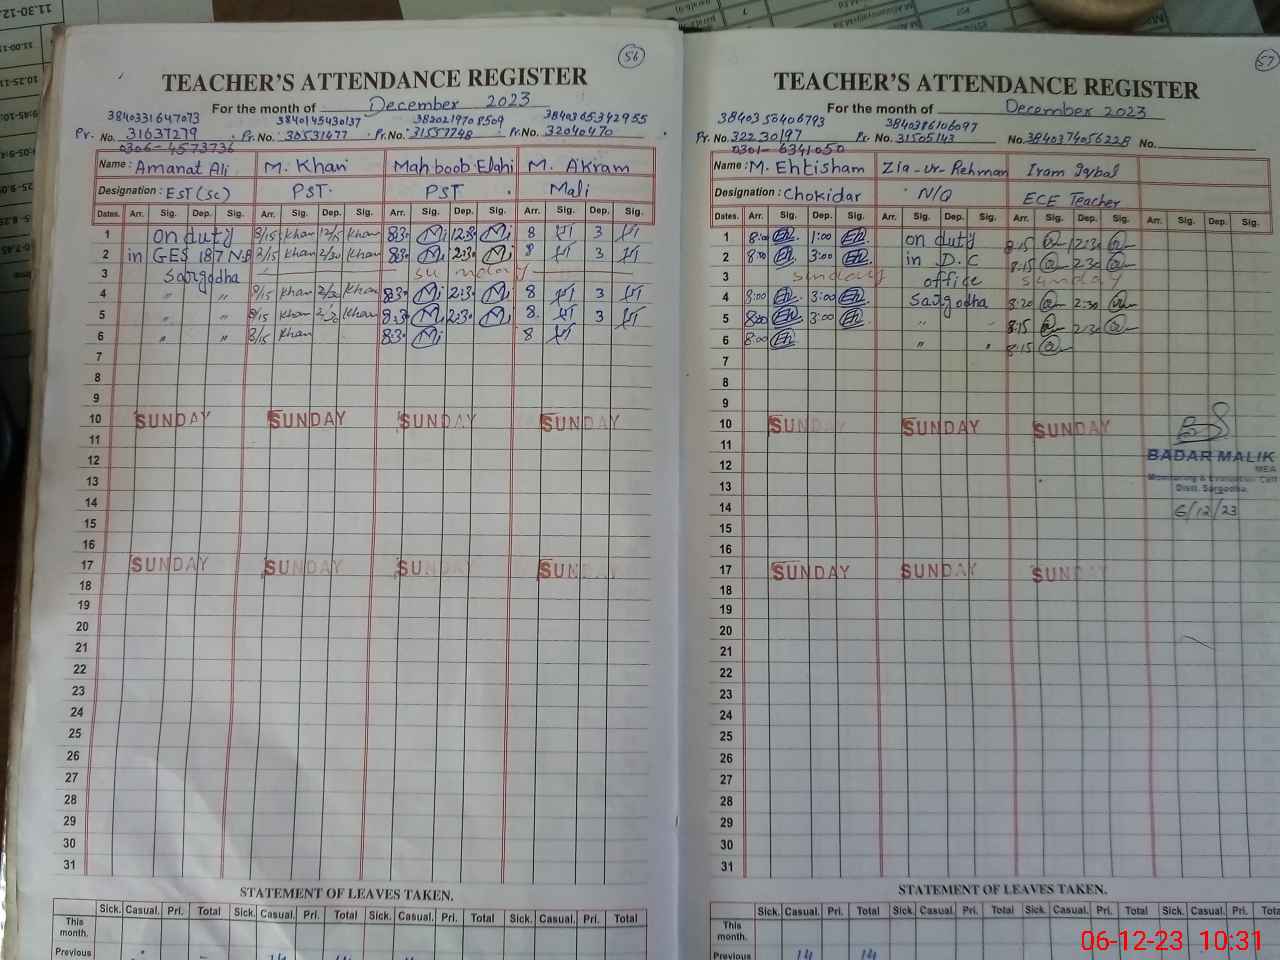 56
TEACHER'S ATTENDANCE REGISTER
For the month of December 2023
3840331647073 3840145430137 3820219708509 3840365342955
Pr. No. 31637279 Pr. No. 30531477 Pr. No. 31557748 Pr. No. 32040470
0306-4573736
Name: Amanat Ali M. Khan Mahboob Elahi M. Akram
Designation: EST(SC) PST PST Mali
Dates. Arr. Sig. Dep. Sig. Arr. Sig. Dep. Sig. Arr. Sig. Dep. Sig. Arr. Sig. Dep. Sig.
1 on duty 8/15 Khan 12/5 Khan 8:30 12:30 8 3
2 in GES 187 NB 8/15 Khan 2/30 Khan 8:30 2:30 8 3
3 Sargodha Sunday
4 " " 8/15 Khan 2/30 Khan 8:30 2:30 8 3
5 " " 8/15 Khan 2/30 Khan 8:30 2:30 8 3
6 " " 8/15 Khan 8:30 8
7
8
9
10 SUNDAY SUNDAY SUNDAY SUNDAY
11
12
13
14
15
16
17 SUNDAY SUNDAY SUNDAY SUNDAY
18
19
20
21
22
23
24
25
26
27
28
29
30
31
STATEMENT OF LEAVES TAKEN.
Sick. Casual. Pri. Total Sick. Casual. Pri. Total Sick. Casual. Pri. Total Sick. Casual. Pri. Total
This month.
Previous
57
TEACHER'S ATTENDANCE REGISTER
For the month of December 2023
3840350406793 3840386106097
Pr. No. 32230197 Pr. No. 31505143 No. 3840374056228 No.
0301-6341050
Name: M. Ehtisham Zia-ur-Rehman Iram Iqbal
Designation: Chokidar N/Q ECE Teacher
Dates. Arr. Sig. Dep. Sig. Arr. Sig. Dep. Sig. Arr. Sig. Dep. Sig. Arr. Sig. Dep. Sig.
1 8:00 1:00 on duty 8:15 12:30
2 8:00 3:00 in D.C 8:15 2:30
3 Sunday office Sunday
4 8:00 3:00 Sargodha 8:20 2:30
5 8:00 3:00 " 8:15 2:30
6 8:00 " " 8:15
7
8
9
10 SUNDAY SUNDAY SUNDAY
11
12
13
14
15
16
17 SUNDAY SUNDAY SUNDAY
18
19
20
21
22
23
24
25
26
27
28
29
30
31
BADAR MALIK
MEA
Monitoring & Evaluation Cell
Distt. Sargodha.
6/12/23
STATEMENT OF LEAVES TAKEN.
Sick. Casual. Pri. Total Sick. Casual. Pri. Total Sick. Casual. Pri. Total Sick. Casual. Pri. Total
This month.
Previous 14 14
06-12-23 10:31